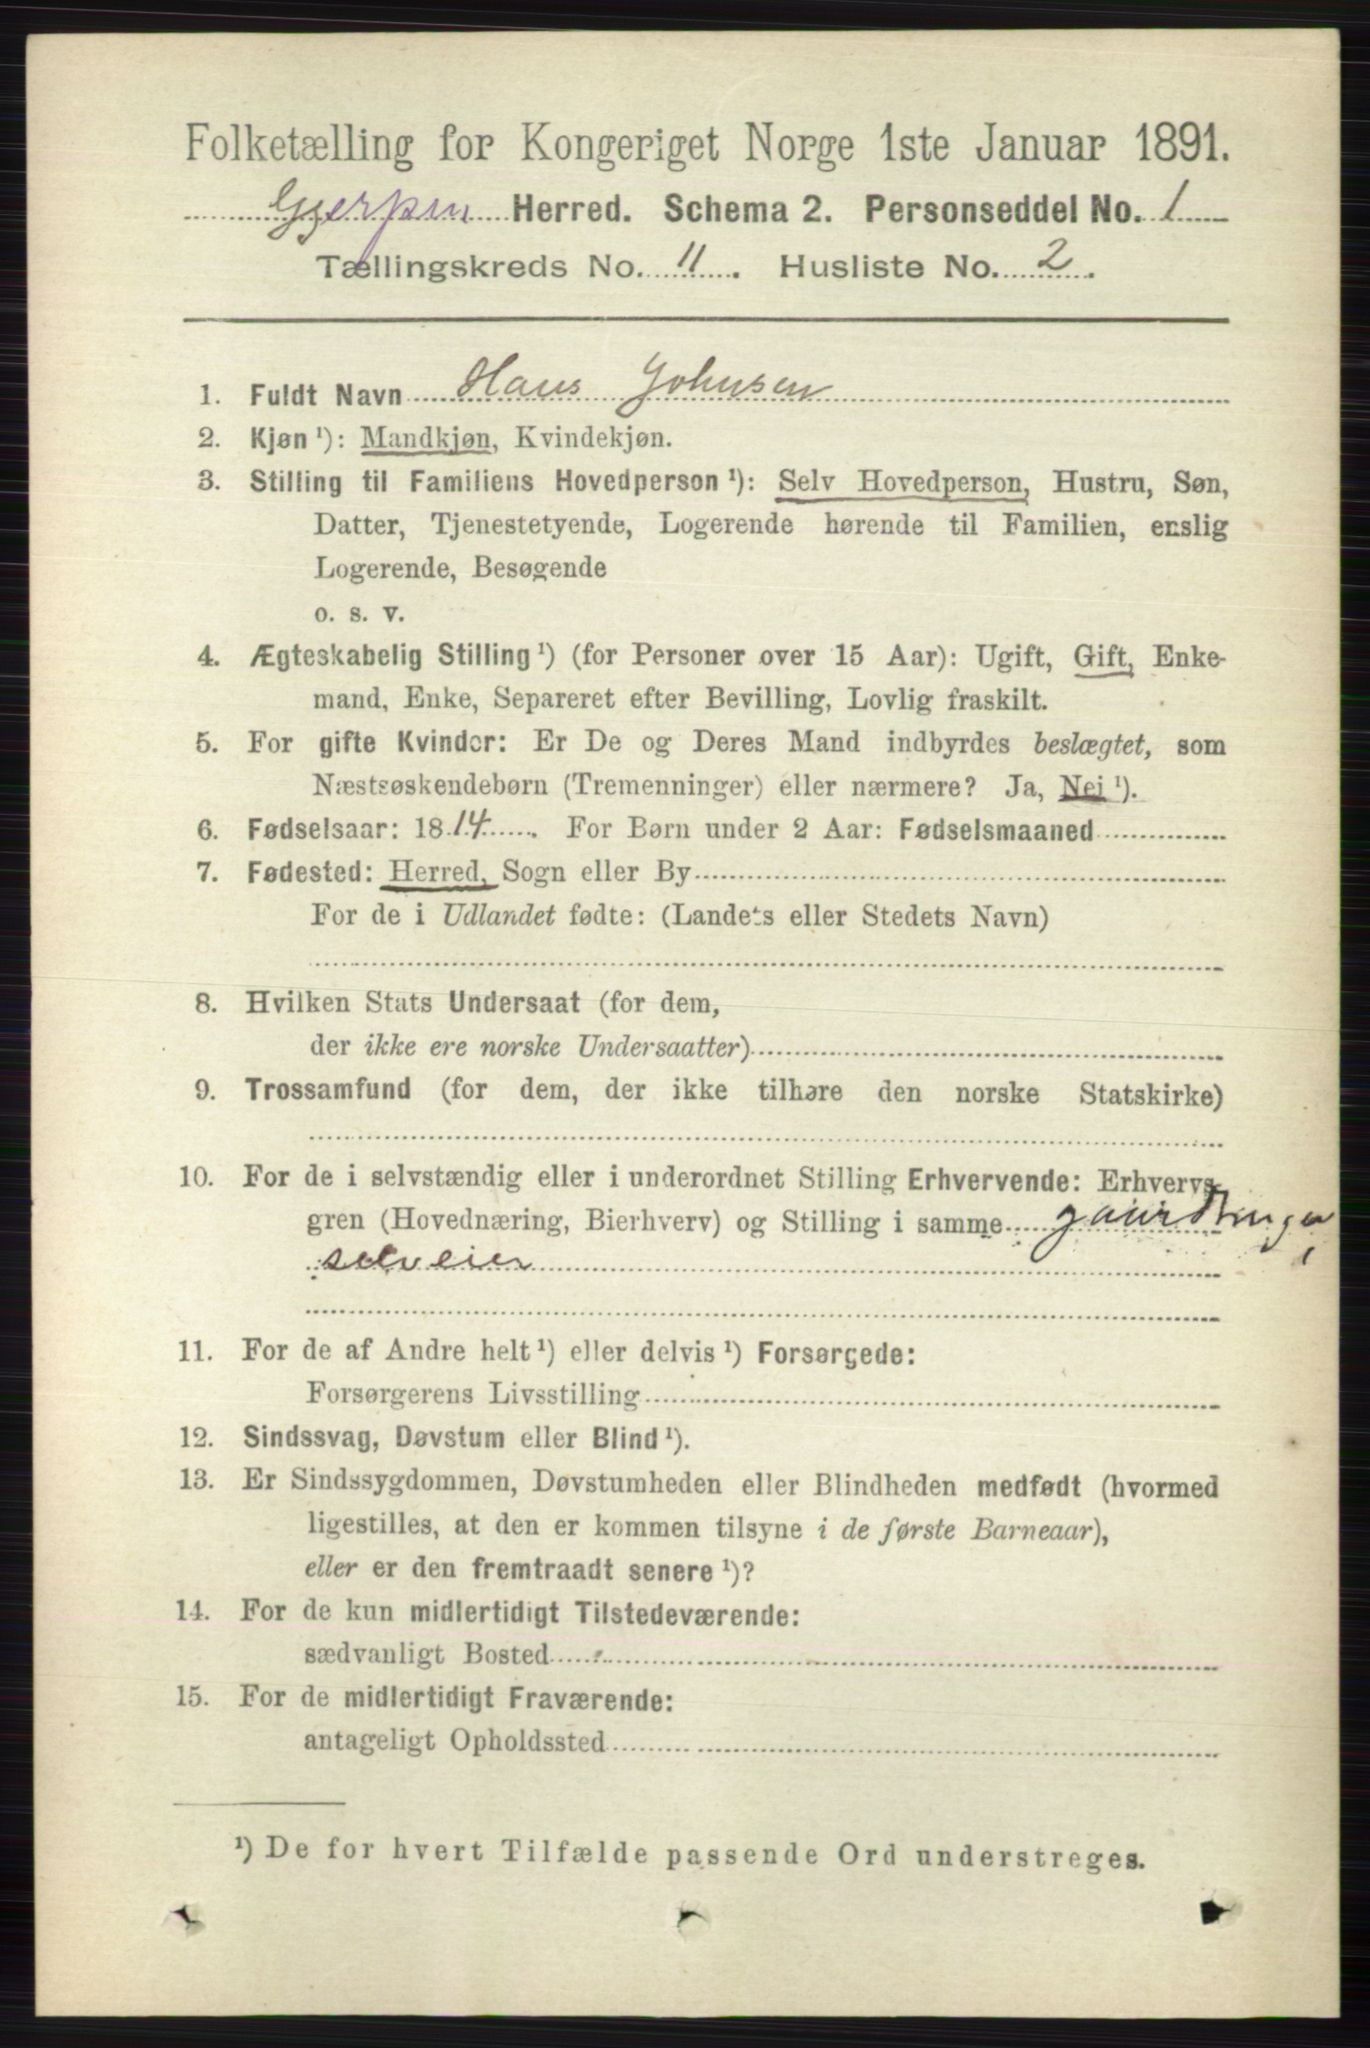 Folketælling for Kongeriget Norge 1ste Januar 1891.
Gjerpen Herred. Schema 2. Personseddel No. 1
Tællingskreds No. 11. Husliste No. 2.
1. Fuldt Navn Hans Johnsen
2. Kjøn ¹): Mandkjøn, Kvindekjøn.
3. Stilling til Familiens Hovedperson ¹): Selv Hovedperson, Hustru, Søn,
Datter, Tjenestetyende, Logerende hørende til Familien, enslig
Logerende, Besøgende
o. s. v.
4. Ægteskabelig Stilling ¹) (for Personer over 15 Aar): Ugift, Gift, Enke-
mand, Enke, Separeret efter Bevilling, Lovlig fraskilt.
5. For gifte Kvinder: Er De og Deres Mand indbyrdes beslægtet, som
Næstsøskendebørn (Tremenninger) eller nærmere? Ja, Nei ¹).
6. Fødselsaar: 1814. For Børn under 2 Aar: Fødselsmaaned
7. Fødested: Herred, Sogn eller By
For de i Udlandet fødte: (Landets eller Stedets Navn)
8. Hvilken Stats Undersaat (for dem,
der ikke ere norske Undersaatter)
9. Trossamfund (for dem, der ikke tilhøre den norske Statskirke)
10. For de i selvstændig eller i underordnet Stilling Erhvervende: Erhvervs-
gren (Hovednæring, Bierhverv) og Stilling i samme gaardbruger
selveier
11. For de af Andre helt ¹) eller delvis ¹) Forsørgede:
Forsørgerens Livsstilling
12. Sindssvag, Døvstum eller Blind ¹).
13. Er Sindssygdommen, Døvstumheden eller Blindheden medfødt (hvormed
ligestilles, at den er kommen tilsyne i de første Barneaar),
eller er den fremtraadt senere ¹)?
14. For de kun midlertidigt Tilstedeværende:
sædvanligt Bosted
15. For de midlertidigt Fraværende:
antageligt Opholdssted
¹) De for hvert Tilfælde passende Ord understreges.